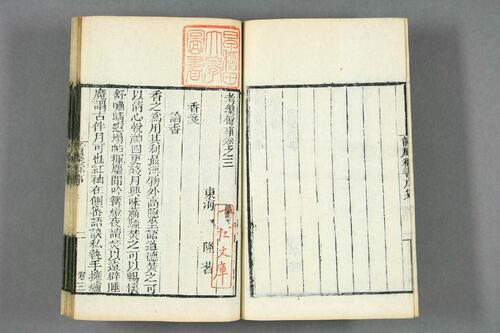 考槃餘事卷之三
東海 隆著
香箋
論香
香之為用其利最溥物外高隱坐語道德焚之可
以清心悅神四更殘月興味蕭騷焚之可以暢懷
舒嘯晴窗搨帖揮麈閒吟篝燈夜讀焚以遠辟睡
魔謂古伴月可也紅袖在側密語談私執手擁爐
卷三
早稲田大學圖書
仁文庫